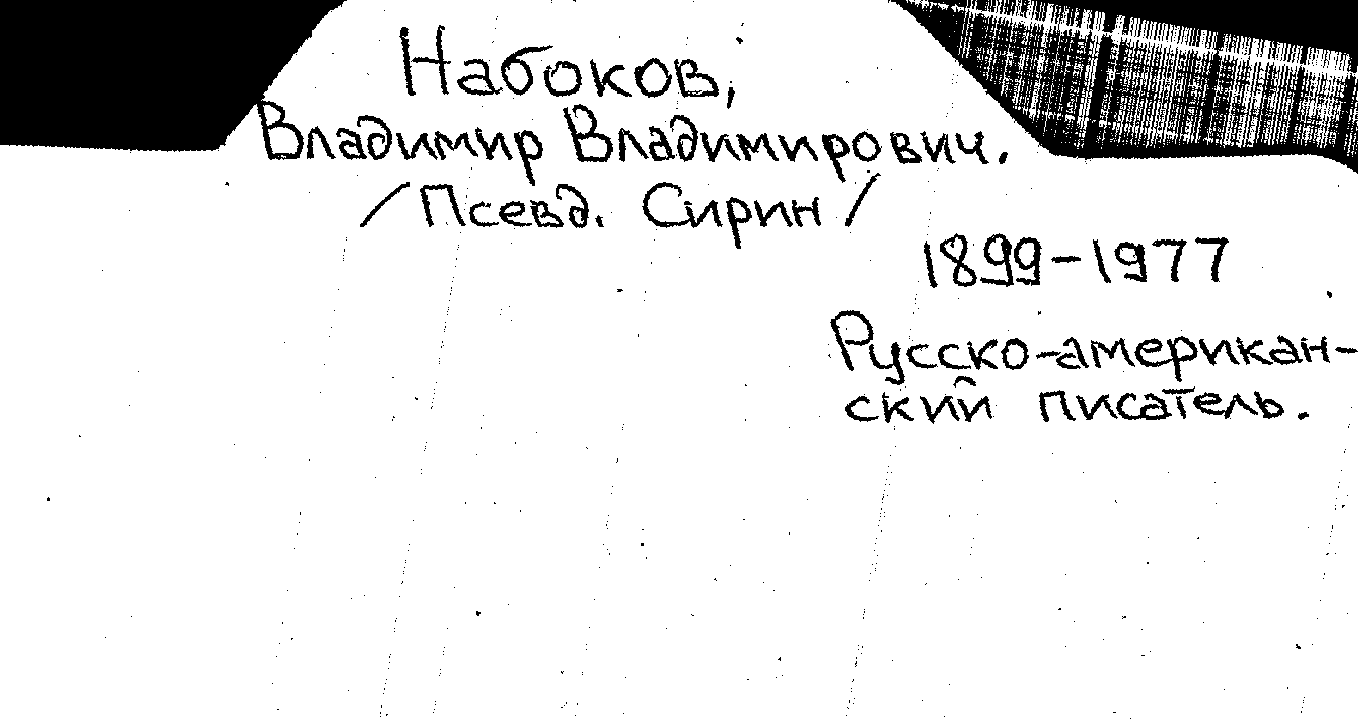 Набоков,
Владимир Владимирович.
/Псевд. Сирин/
1899-1977
Русско-американ-
ский писатель.